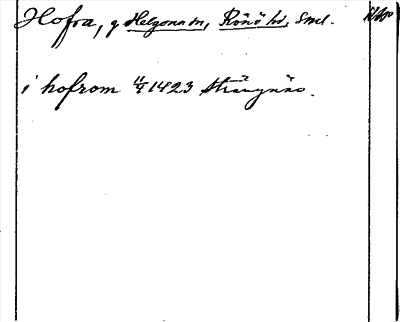 Hofra, g Helgona sn, Rönö hd, Sml.
i hofrom 11/4 1423 Strängnäs.